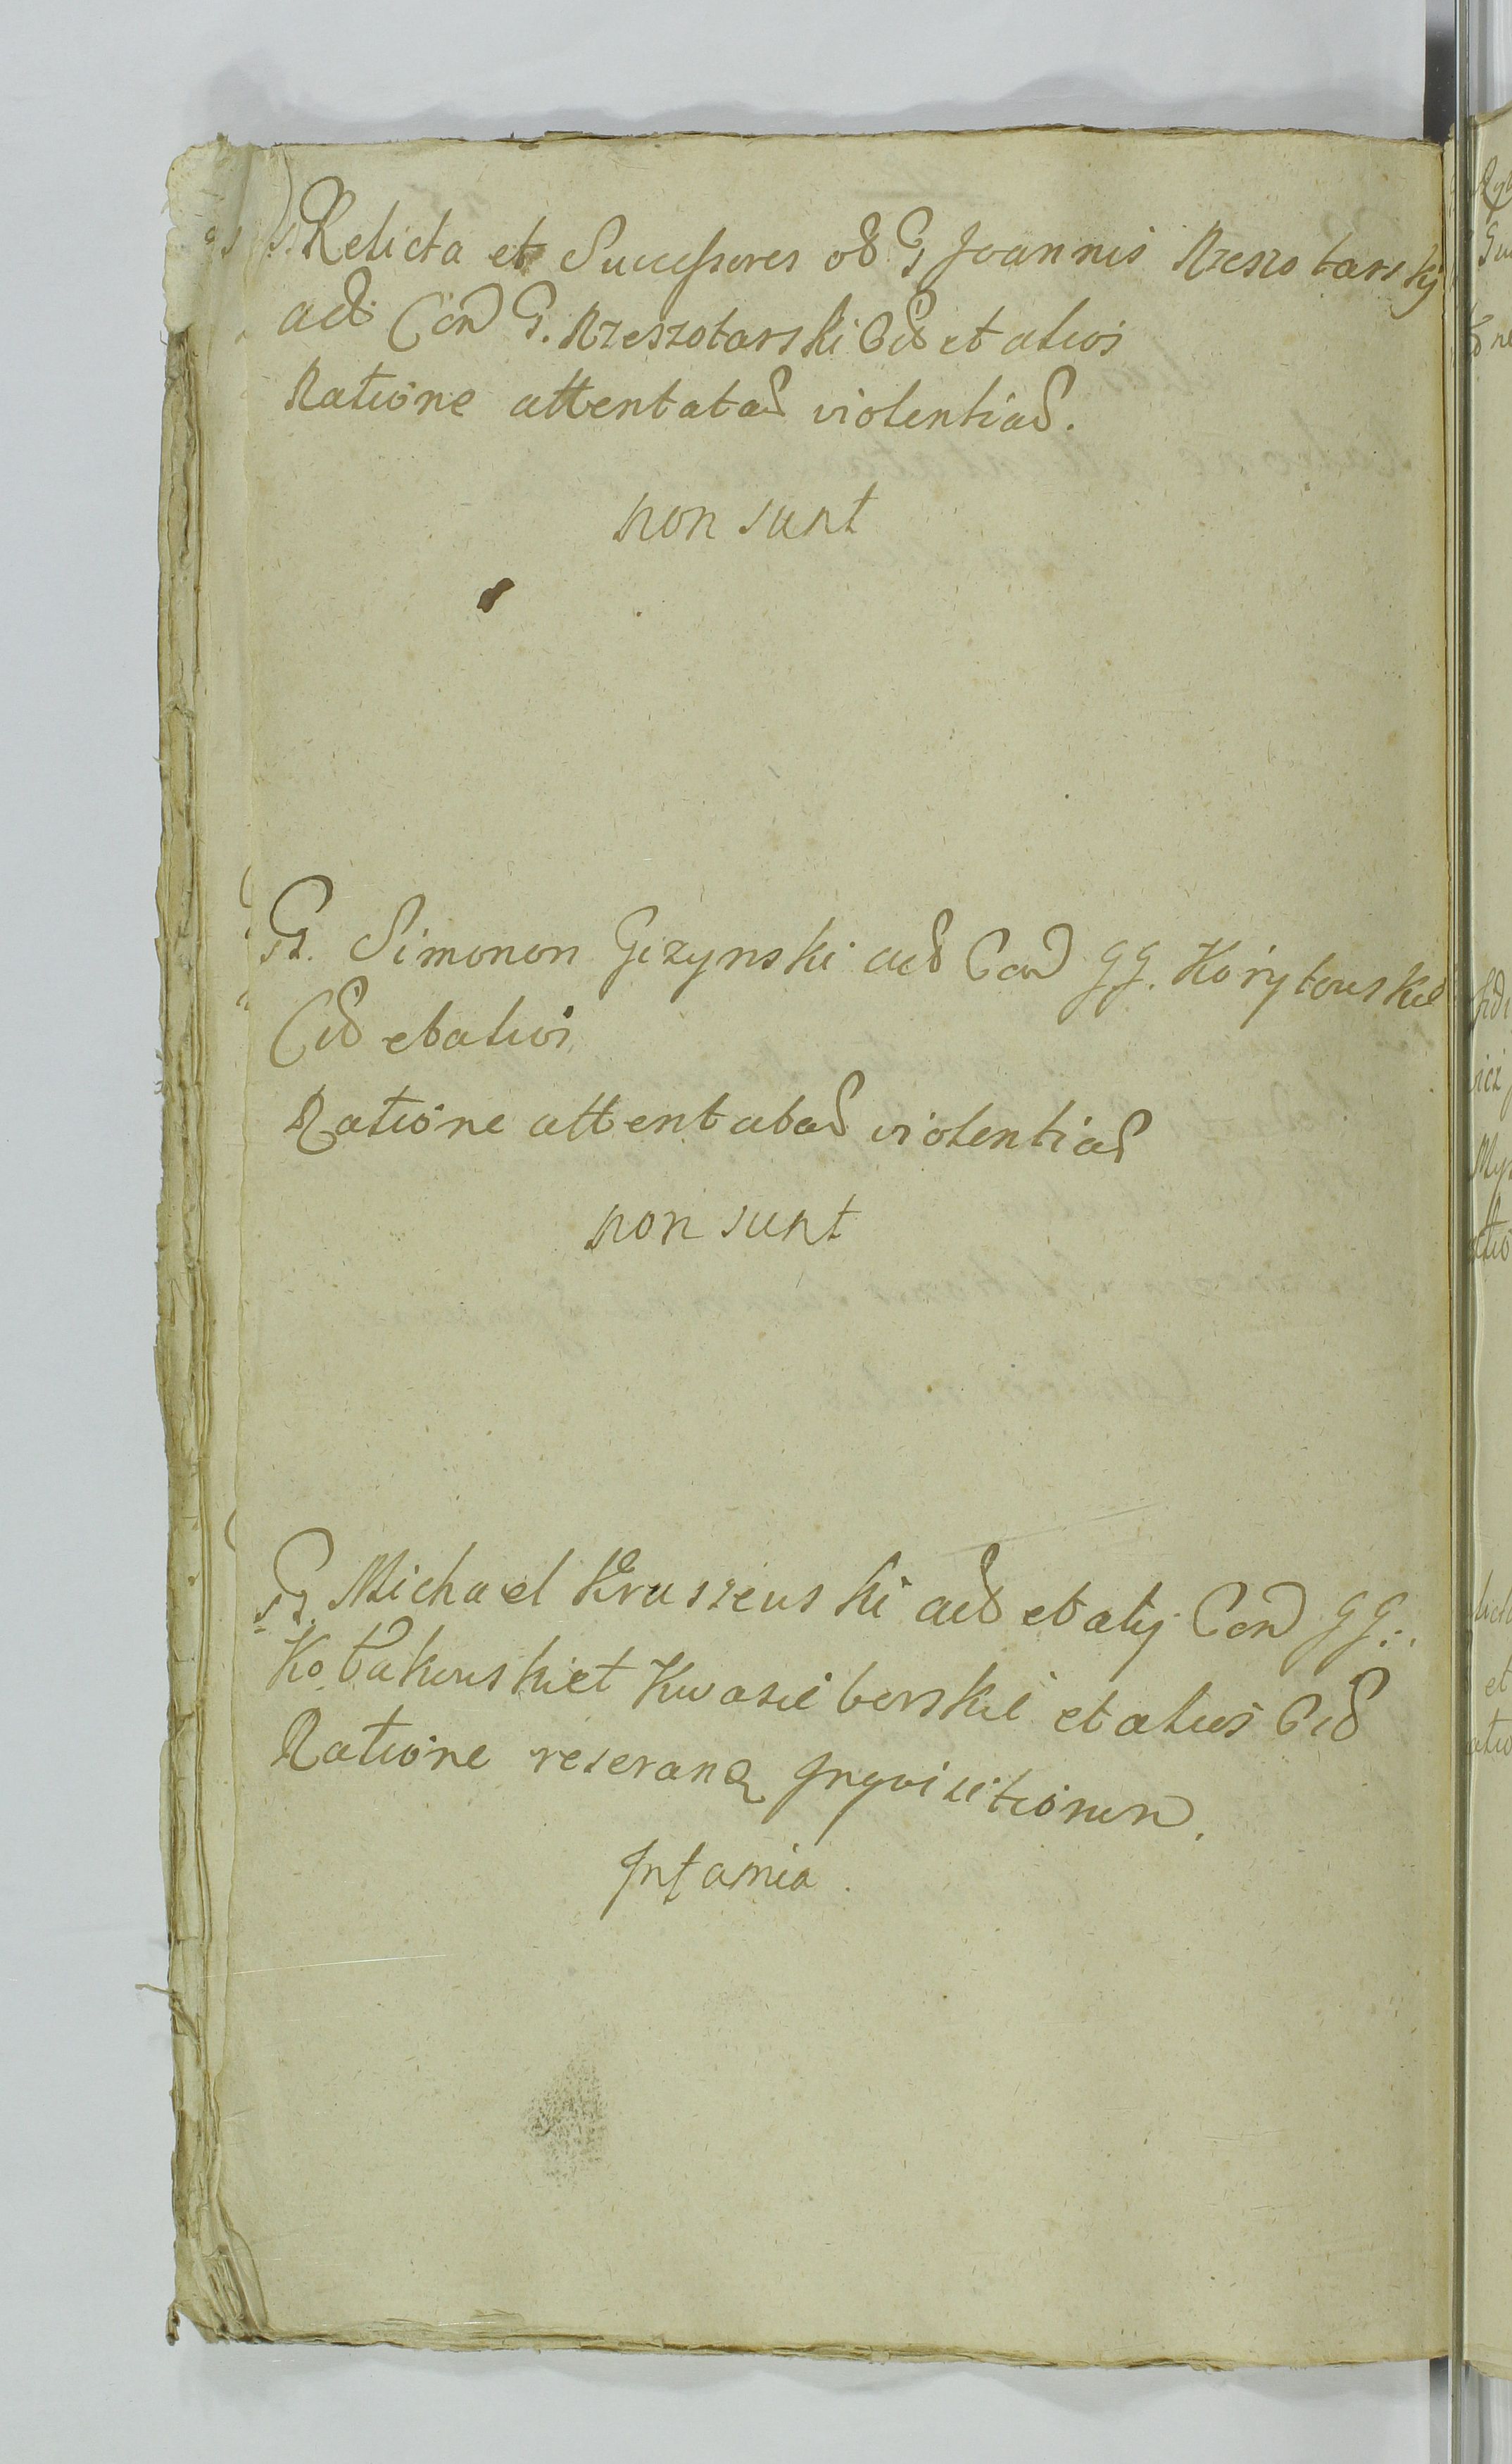 Relicta et Successores ol G Joannis Rzeszotarskij
act Con G. Rzeszotarski Cit et alios
Ratione attentatae violentiae.
non sunt
G. Simonon Gizynski act Con GG. Korytowskie
Cit et alios
Ratione attentatae violentiae
non sunt
G. Michael Kruszewski act et alij Con GG.
Kołakowski et Kwasieborskie et alios Cit
Ratione reseranq Inqvisitionem.
Infamia.